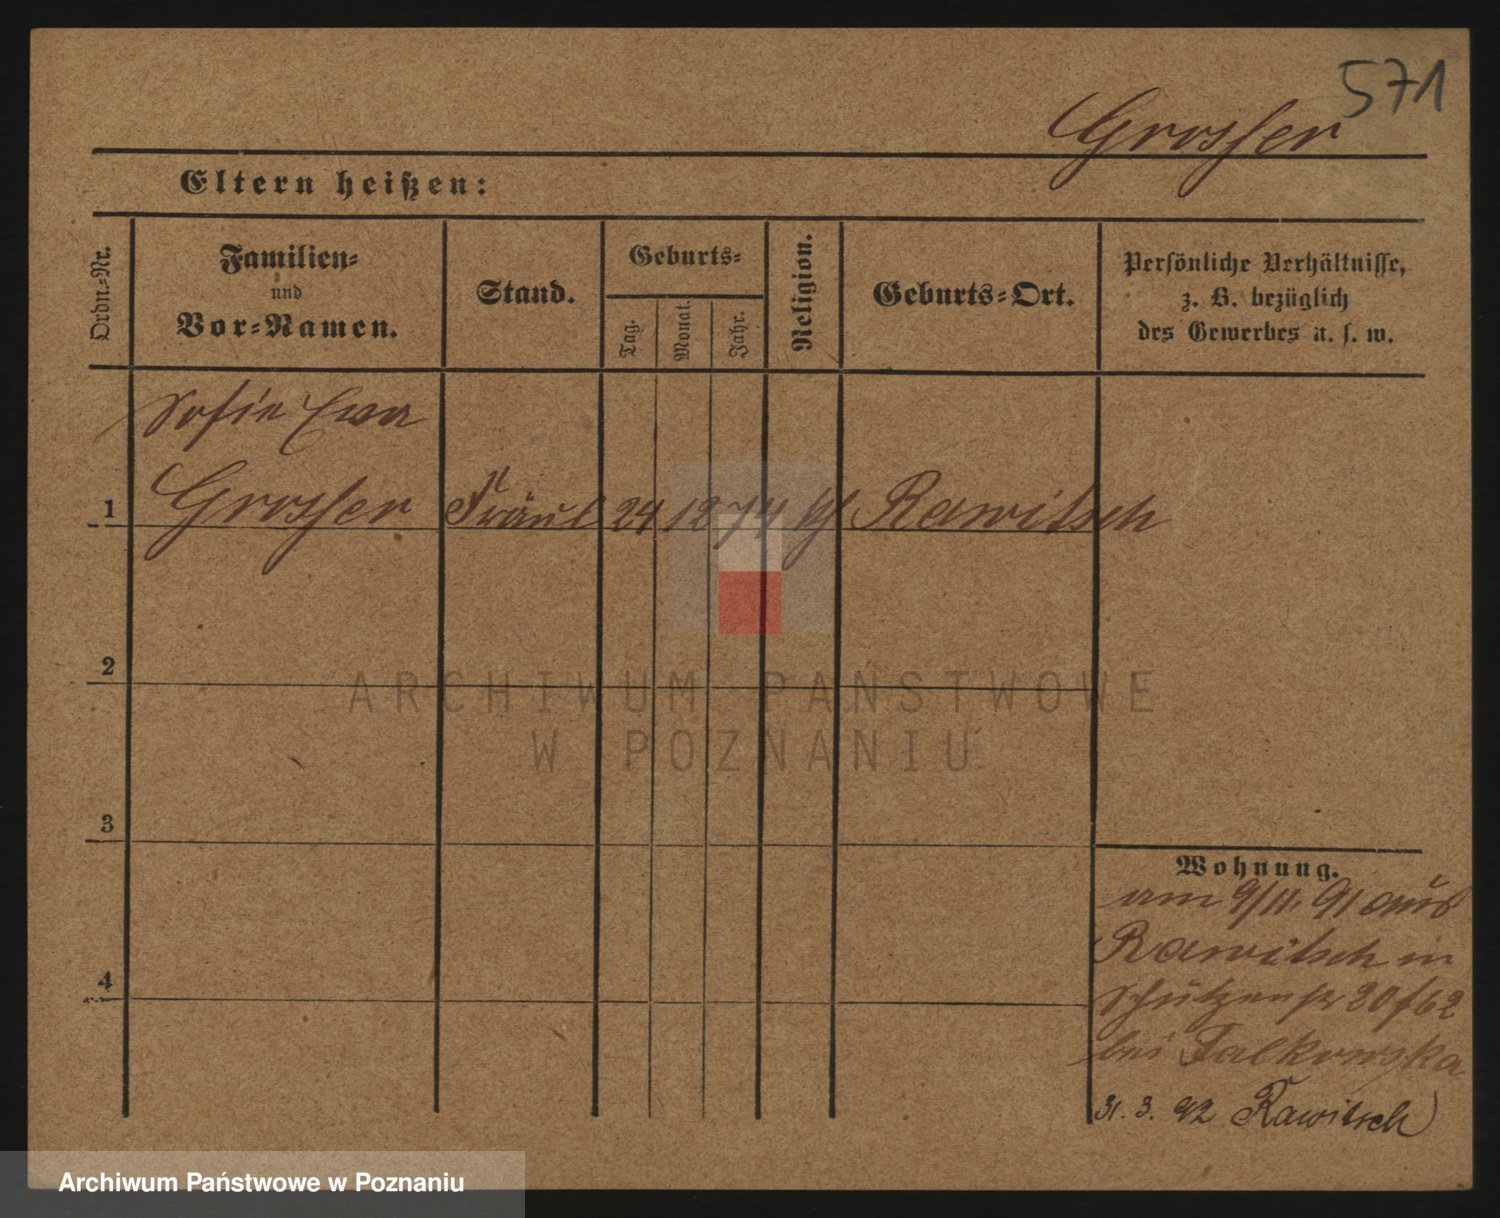 571
Grosser
Eltern heißen:
Ordn.-Nr.
Familien-
und
Vor-Namen.
Stand.
Geburts-
Tag.
Monat.
Jahr.
Religion.
Geburts-Ort.
Persönliche Verhältnisse,
z. B. bezüglich
des Gewerbes u. s. w.
Sofie Ewa
1 Grosser Fräul 24 12 74 Rawitsch
2
3
4
Wohnung.
am 9/11. 91 aus
Rawitsch in
Schützenstr 20 62
bei Falkowska
31. 3. 92 Rawitsch
ARCHIWUM PAŃSTWOWE
W POZNANIU
Archiwum Państwowe w Poznaniu